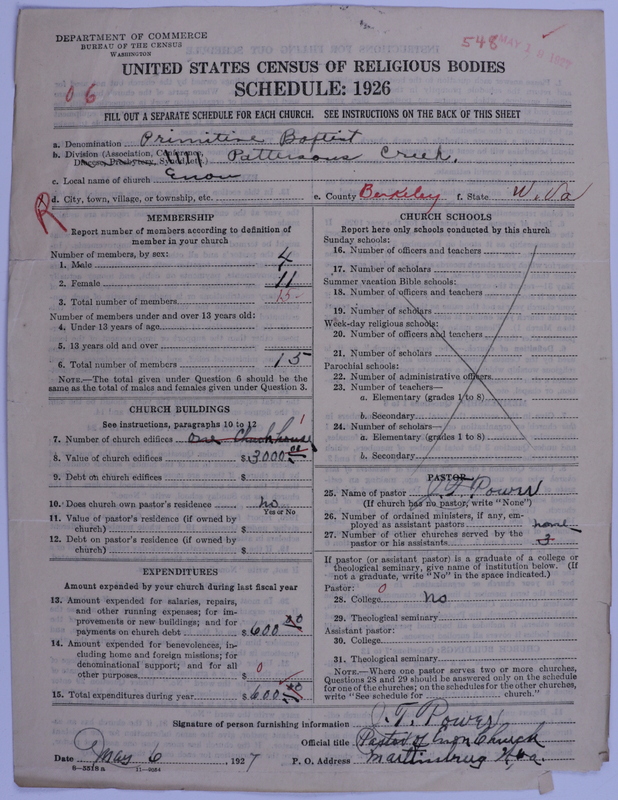 DEPARTMENT OF COMMERCE
BUREAU OF THE CENSUS
WASHINGTON
548
UNITED STATES CENSUS OF RELIGIOUS BODIES
SCHEDULE: 1926
06
FILL OUT A SEPARATE SCHEDULE FOR EACH CHURCH. SEE INSTRUCTIONS ON THE BACK OF THIS SHEET
a. Denomination Primitive Baptist
b. Division (Association, Conference, Diocese, Presbytery, Synod, etc.) Pattersons Creek.
c. Local name of church Enon
R
d. City, town, village, or township, etc. e. County Berkeley f. State W. Va
MEMBERSHIP
Report number of members according to definition of
member in your church
Number of members, by sex:
1. Male 4
2. Female 11
3. Total number of members 15
Number of members under and over 13 years old:
4. Under 13 years of age
5. 13 years old and over
6. Total number of members 15
NOTE.—The total given under Question 6 should be the
same as the total of males and females given under Question 3.
CHURCH BUILDINGS
See instructions, paragraphs 10 to 12
7. Number of church edifices one Church house 1
8. Value of church edifices $3000
9. Debt on church edifices $
10. Does church own pastor's residence no
Yes or No
11. Value of pastor's residence (if owned by
church) $
12. Debt on pastor's residence (if owned by
church) $
EXPENDITURES
Amount expended by your church during last fiscal year
13. Amount expended for salaries, repairs,
and other running expenses; for im-
provements or new buildings; and for
payments on church debt $600 00
14. Amount expended for benevolences, in-
cluding home and foreign missions; for
denominational support; and for all
other purposes $ 0
15. Total expenditures during year $600 00
CHURCH SCHOOLS
Report here only schools conducted by this church
Sunday schools:
16. Number of officers and teachers
17. Number of scholars
Summer vacation Bible schools:
18. Number of officers and teachers
19. Number of scholars
Week-day religious schools:
20. Number of officers and teachers
21. Number of scholars
Parochial schools:
22. Number of administrative officers
23. Number of teachers—
a. Elementary (grades 1 to 8)
b. Secondary
24. Number of scholars—
a. Elementary (grades 1 to 8)
b. Secondary
PASTOR
25. Name of pastor J. T. Power
(If church has no pastor, write "None")
26. Number of ordained ministers, if any, em-
ployed as assistant pastors none
27. Number of other churches served by the
pastor or his assistants 3
If pastor (or assistant pastor) is a graduate of a college or
theological seminary, give name of institution below. (If
not a graduate, write "No" in the space indicated.)
Pastor: 0
28. College no
29. Theological seminary
Assistant pastor:
30. College
31. Theological seminary
NOTE.—Where one pastor serves two or more churches,
Questions 28 and 29 should be answered only on the schedule
for one of the churches; on the schedules for the other churches,
write "See schedule for church."
Signature of person furnishing information J. T. Power
Official title Pastor of Enon Church
Date May 6, 1927 P. O. Address Martinsburg W.va.
8—5518 a 11—9054